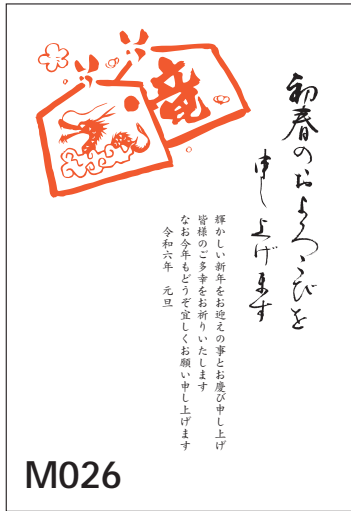 初春のおよろこびを
申し上げます
輝かしい新年をお迎えの事とお慶び申し上げ
皆様のご多幸をお祈りいたします
なお今年もどうぞ宜しくお願い申し上げます
令和六年　元旦
竜
M026